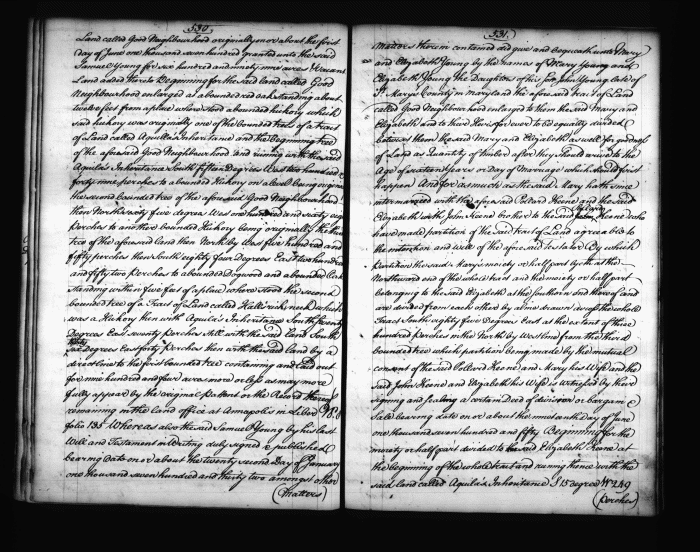 530.
Land called Good Neighbourhood originally on or about the first
day of June one thousand seven hundred granted unto the said
Samuel Young for six hundred and ninety nine acres Vacant
Land added thereto Beginning for the said land called Good
Neighbourhood enlarged at a bounded red oak standing about
twelve feet from a place where stood a bounded hickory which
said hickory was originally one of the bounded trees of a tract
of Land called Aquila's Inheritance and the beginning tree
of the aforesaid Good Neighbourhood and running with the said
Aquila's Inheritance South fifteen degrees West two hundred &
forty nine perches to a bounded Hickory on a level being original
the second bounded tree of the aforesaid Good Neighbourhood
then North sixty five degrees West one hundred and sixty eight
Perches to another bounded Hickory being originally the third
tree of the aforesaid land then North by West five hundred and
fifty perches then South eighty four degrees East two hundred
and fifty two Perches to a bounded Dogwood and a bounded Oak
standing within five feet of a place where stood the second
bounded tree of a Tract of Land called Hell's rick neck which
was a Hickory then with Aquila's Inheritance South seventy
Degrees East seventy Perches still with the said Land South
Degrees East forty Perches then with the said land by a
direct line to the first bounded tree containing and laid out
for nine hundred and four acres more or less as may more
fully appear by the original Patent or the Record thereof
remaining in the land office at Annapolis in Liber
folio 135 Whereas also the said Samuel Young by his last
Will and Testament in Writing duly signed & published
bearing Date on or about the twenty second Day of January
one thousand seven hundred and thirty two amongst other
(Matters)
531.
Matters therein contained did give and bequeath unto Mary
and Elizabeth Young by the names of Mary Young and
Elizabeth Young the Daughters of his son John Young late of
St. Marys County in maryland the aforesaid tract of Land
called Good Neighbourhood enlarged to them the said Mary and
Elizabeth and to their Heirs for ever to be equally divided
between them the said Mary and Elizabeth as well for goodness
of Land as Quantity of timber after they should arrive to the
Age of sixteen years or day of Marriage which should first
happen And for as much as the said Mary hath since
intermarried with the aforesaid Pollard Keene and the said
Elizabeth with John Keene brother to the said Pollard Keene who
have made partition of the said tract of Land agreeable to
the intention and will of the aforesaid testator By which
Partition the said Mary's moiety or half part lyeth at the
Northward end of the whole tract and the moiety or half part
belonging to the said Elizabeth at the southern end thereof and
are divided from each other by a line drawn across the whole
Tract South eighty five Degrees East at the extent of three
hundred Perches in the North by West line from the third
bounded tree which partition being made by the mutual
consent of the said Pollard Keene and Mary his Wife and the
said John Keene and Elizabeth his Wife is witnessed by their
signing and sealing a certain Deed of division or bargain &
Sale bearing date on or about the nineteenth day of June
one thousand seven hundred and fifty Beginning for the
moiety or half part divided to the said Elizabeth Keene at
the beginning of the whole tract and running thence with the
said land called Aquila's Inheritance S 15 degrees W 249
(Perches)